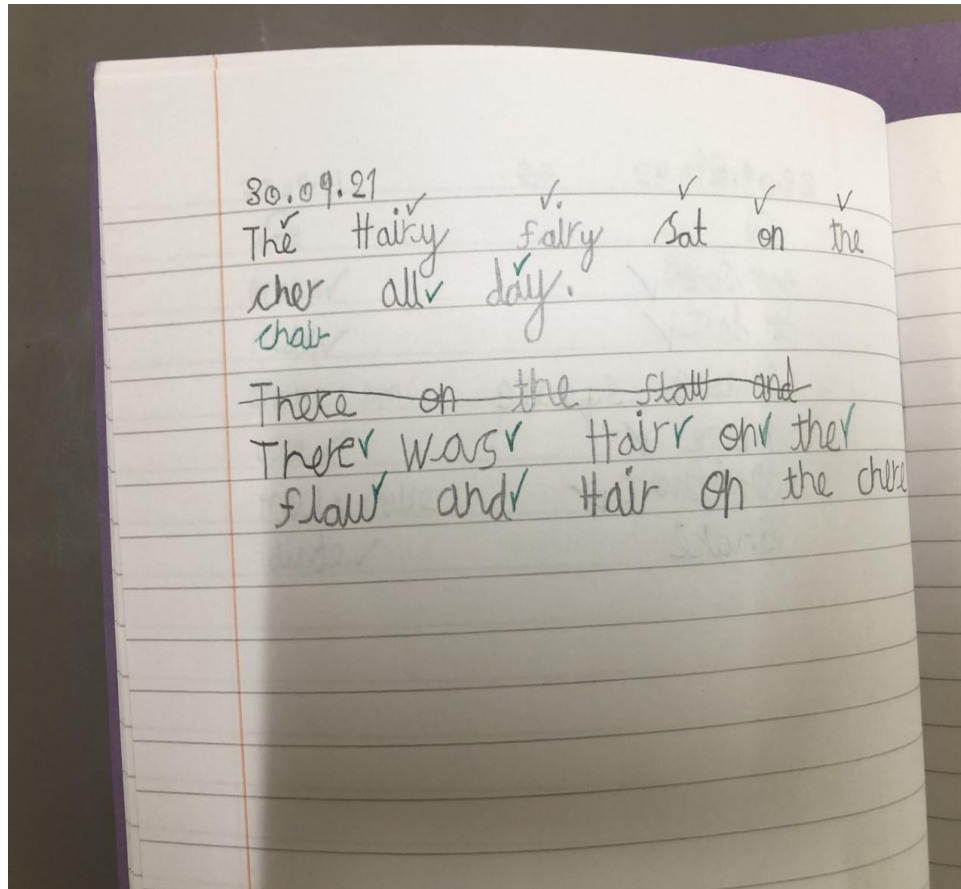 30.09.21
The Hairy fairy sat on the
cher all day.
chair
There on the flaw and
There was Hair on the
flaw and Hair on the chere